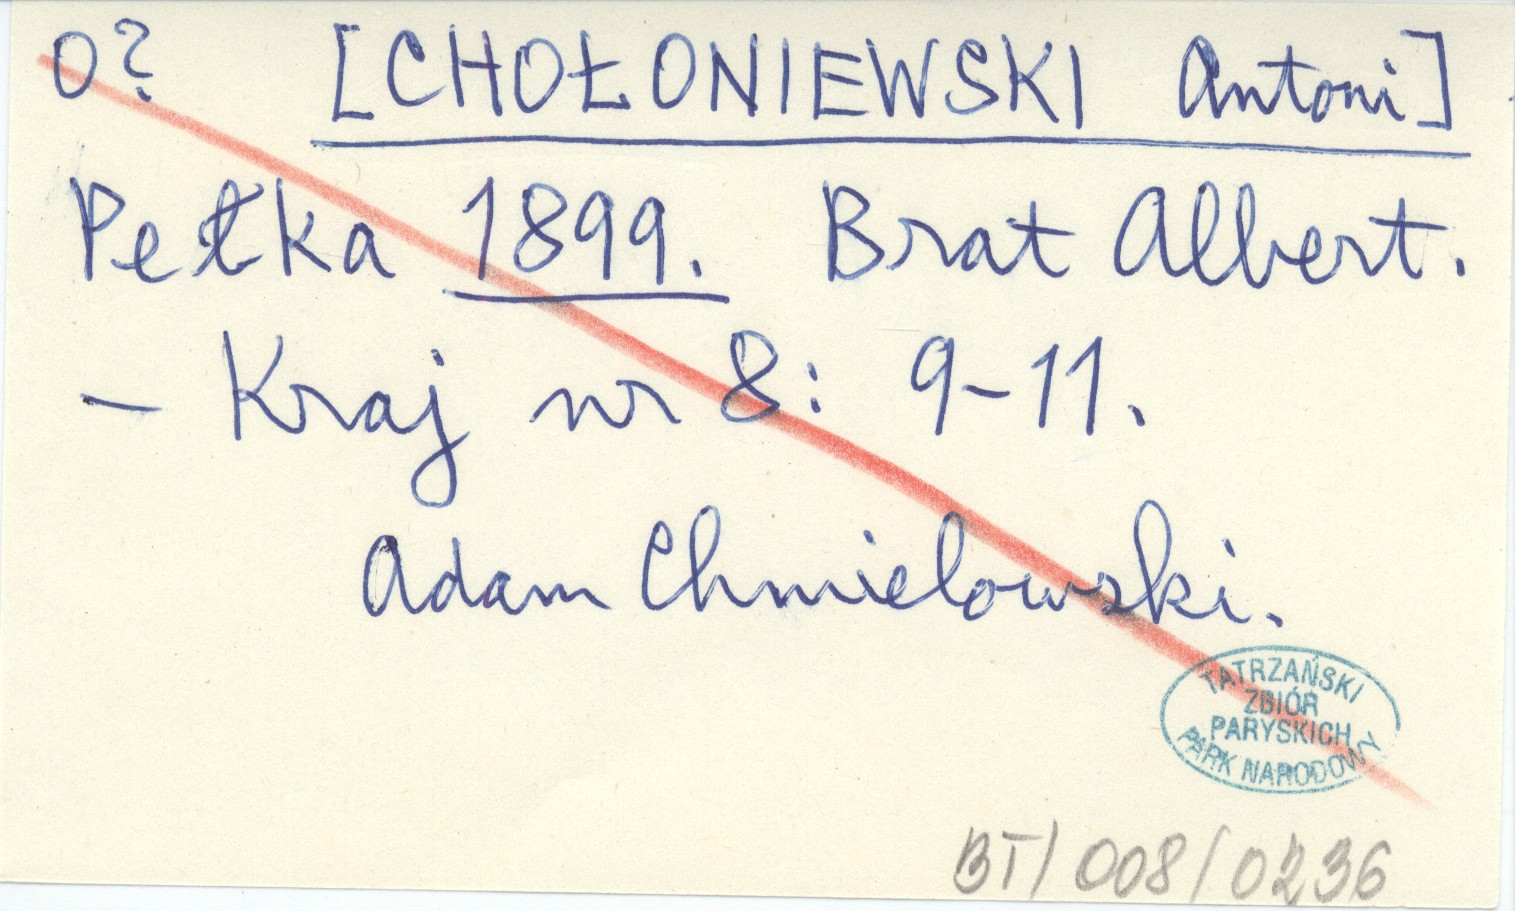 0? [CHOŁONIEWSKI Antoni]
Pełka 1899. Brat Albert.
- Kraj nr 8: 9-11.
Adam Chmielowski.
TATRZAŃSKI
ZBIÓR
PARYSKICH
PARK NARODOWY
BT/008/0236